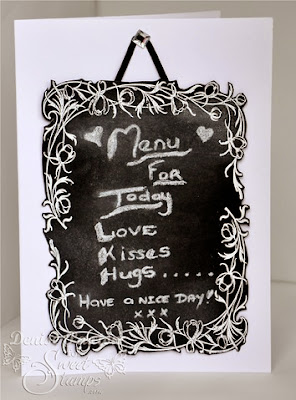 Menu
For
Today
Love
Kisses
Hugs.....
Have a nice day!!
xxx
Sweet
Stamps
.com